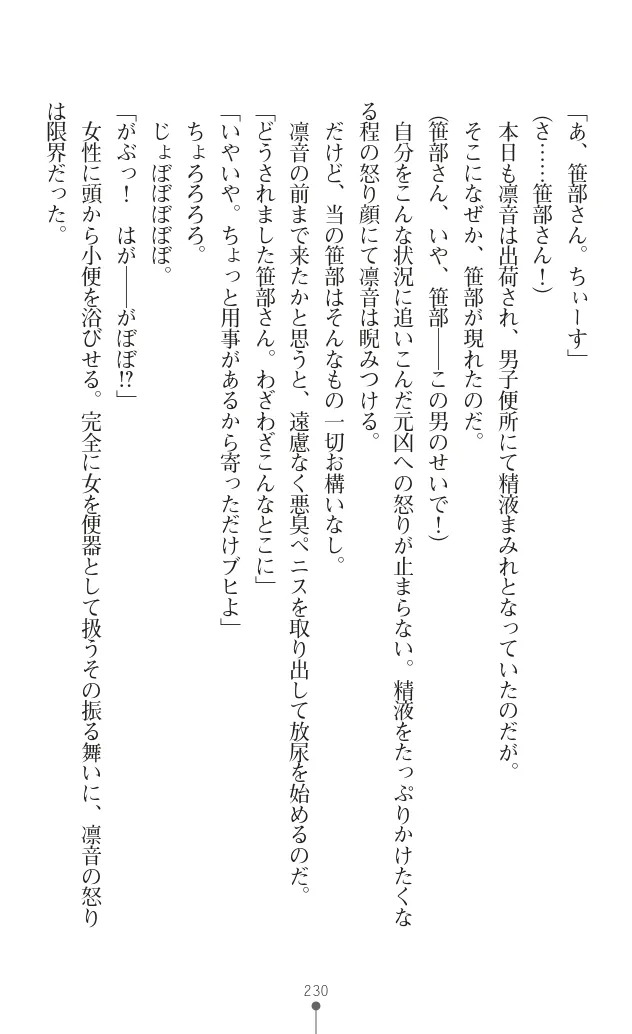 「あ、笹部さん。ちぃーす」
（さ……笹部さん！）
　本日も凛音は出荷され、男子便所にて精液まみれとなっていたのだが。
　そこになぜか、笹部が現れたのだ。
（笹部さん、いや、笹部――この男のせいで！）
　自分をこんな状況に追いこんだ元凶への怒りが止まらない。精液をたっぷりかけたくな
る程の怒り顔にて凛音は睨みつける。
　だけど、当の笹部はそんなもの一切お構いなし。
　凛音の前まで来たかと思うと、遠慮なく悪臭ペニスを取り出して放尿を始めるのだ。
「どうされました笹部さん。わざわざこんなとこに」
「いやいや。ちょっと用事があるから寄っただけブヒよ」
　ちょろろろろ。
　じょぼぼぼぼぼ。
「がぶっ！　はが――がぼぼ!?」
　女性に頭から小便を浴びせる。完全に女を便器として扱うその振る舞いに、凛音の怒り
は限界だった。
230